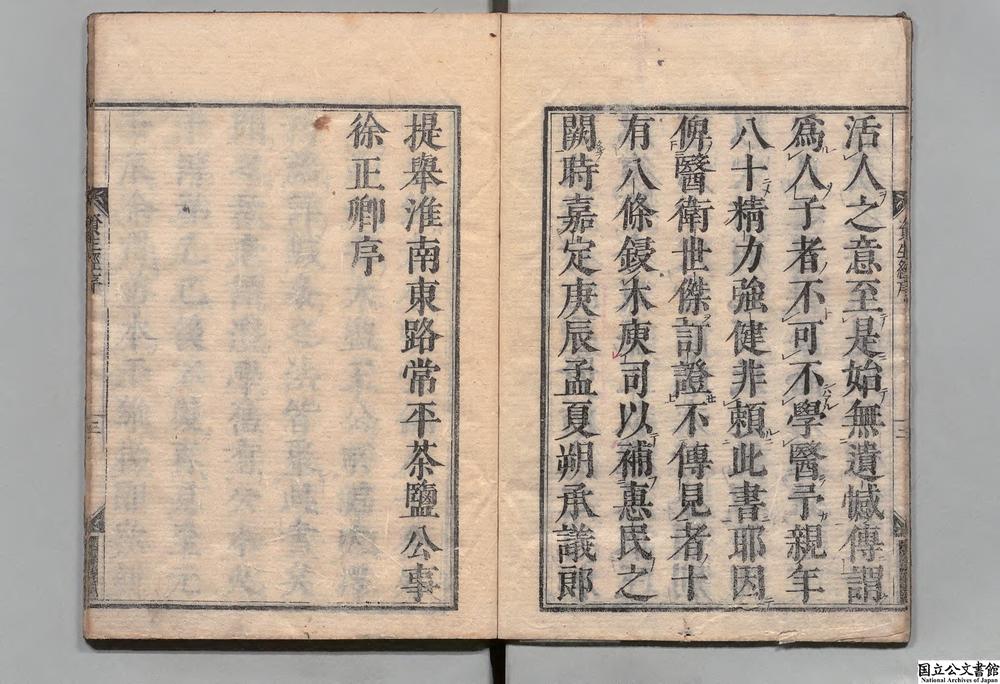 活人之意至是始無遺憾傳謂
爲人子者不可不學醫予親年
八十精力強健非賴此書耶因
俾醫衛世傑訂證不傳見者十
有八條鋟木庾司以補惠民之
闕時嘉定庚辰孟夏朔承議郎
提舉淮南東路常平茶鹽公事
徐正卿序
資生經序
三
国立公文書館
National Archives of Japan